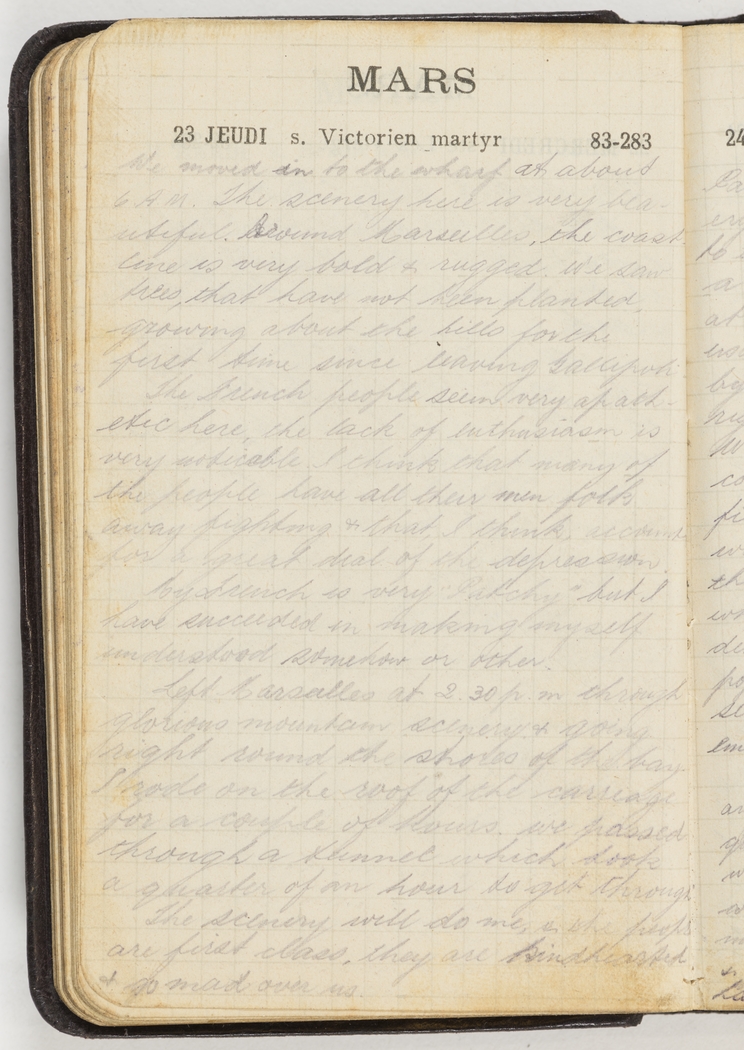 MARS
23 JEUDI s. Victorien martyr 83-283
We moved in to the wharf at about
6 A.M. The scenery here is very bea-
utiful. Around Marseilles, the coast
line is very bold & rugged. We saw
trees, that have not been planted,
growing about the hills for the
first time since leaving Gallipoli
The French people seem very apath-
etic here, the lack of enthusiasm is
very noticable I think that many of
the people have all their men folk
away fighting & that, I think, account
for a great deal of the depression.
My French is very "Patchy" but I
have succeeded in making myself
understood somehow or other.
Left Marseilles at 2.30 p.m through
glorious mountain scenery & going
right round the shores of the bay
I rode on the roof of the carriage
for a couple of hours. we passed
through a tunnel which took
a quarter of an hour to get through
The scenery will do me, & the people
are first class, they are kindhearted
& so mad over us.
24